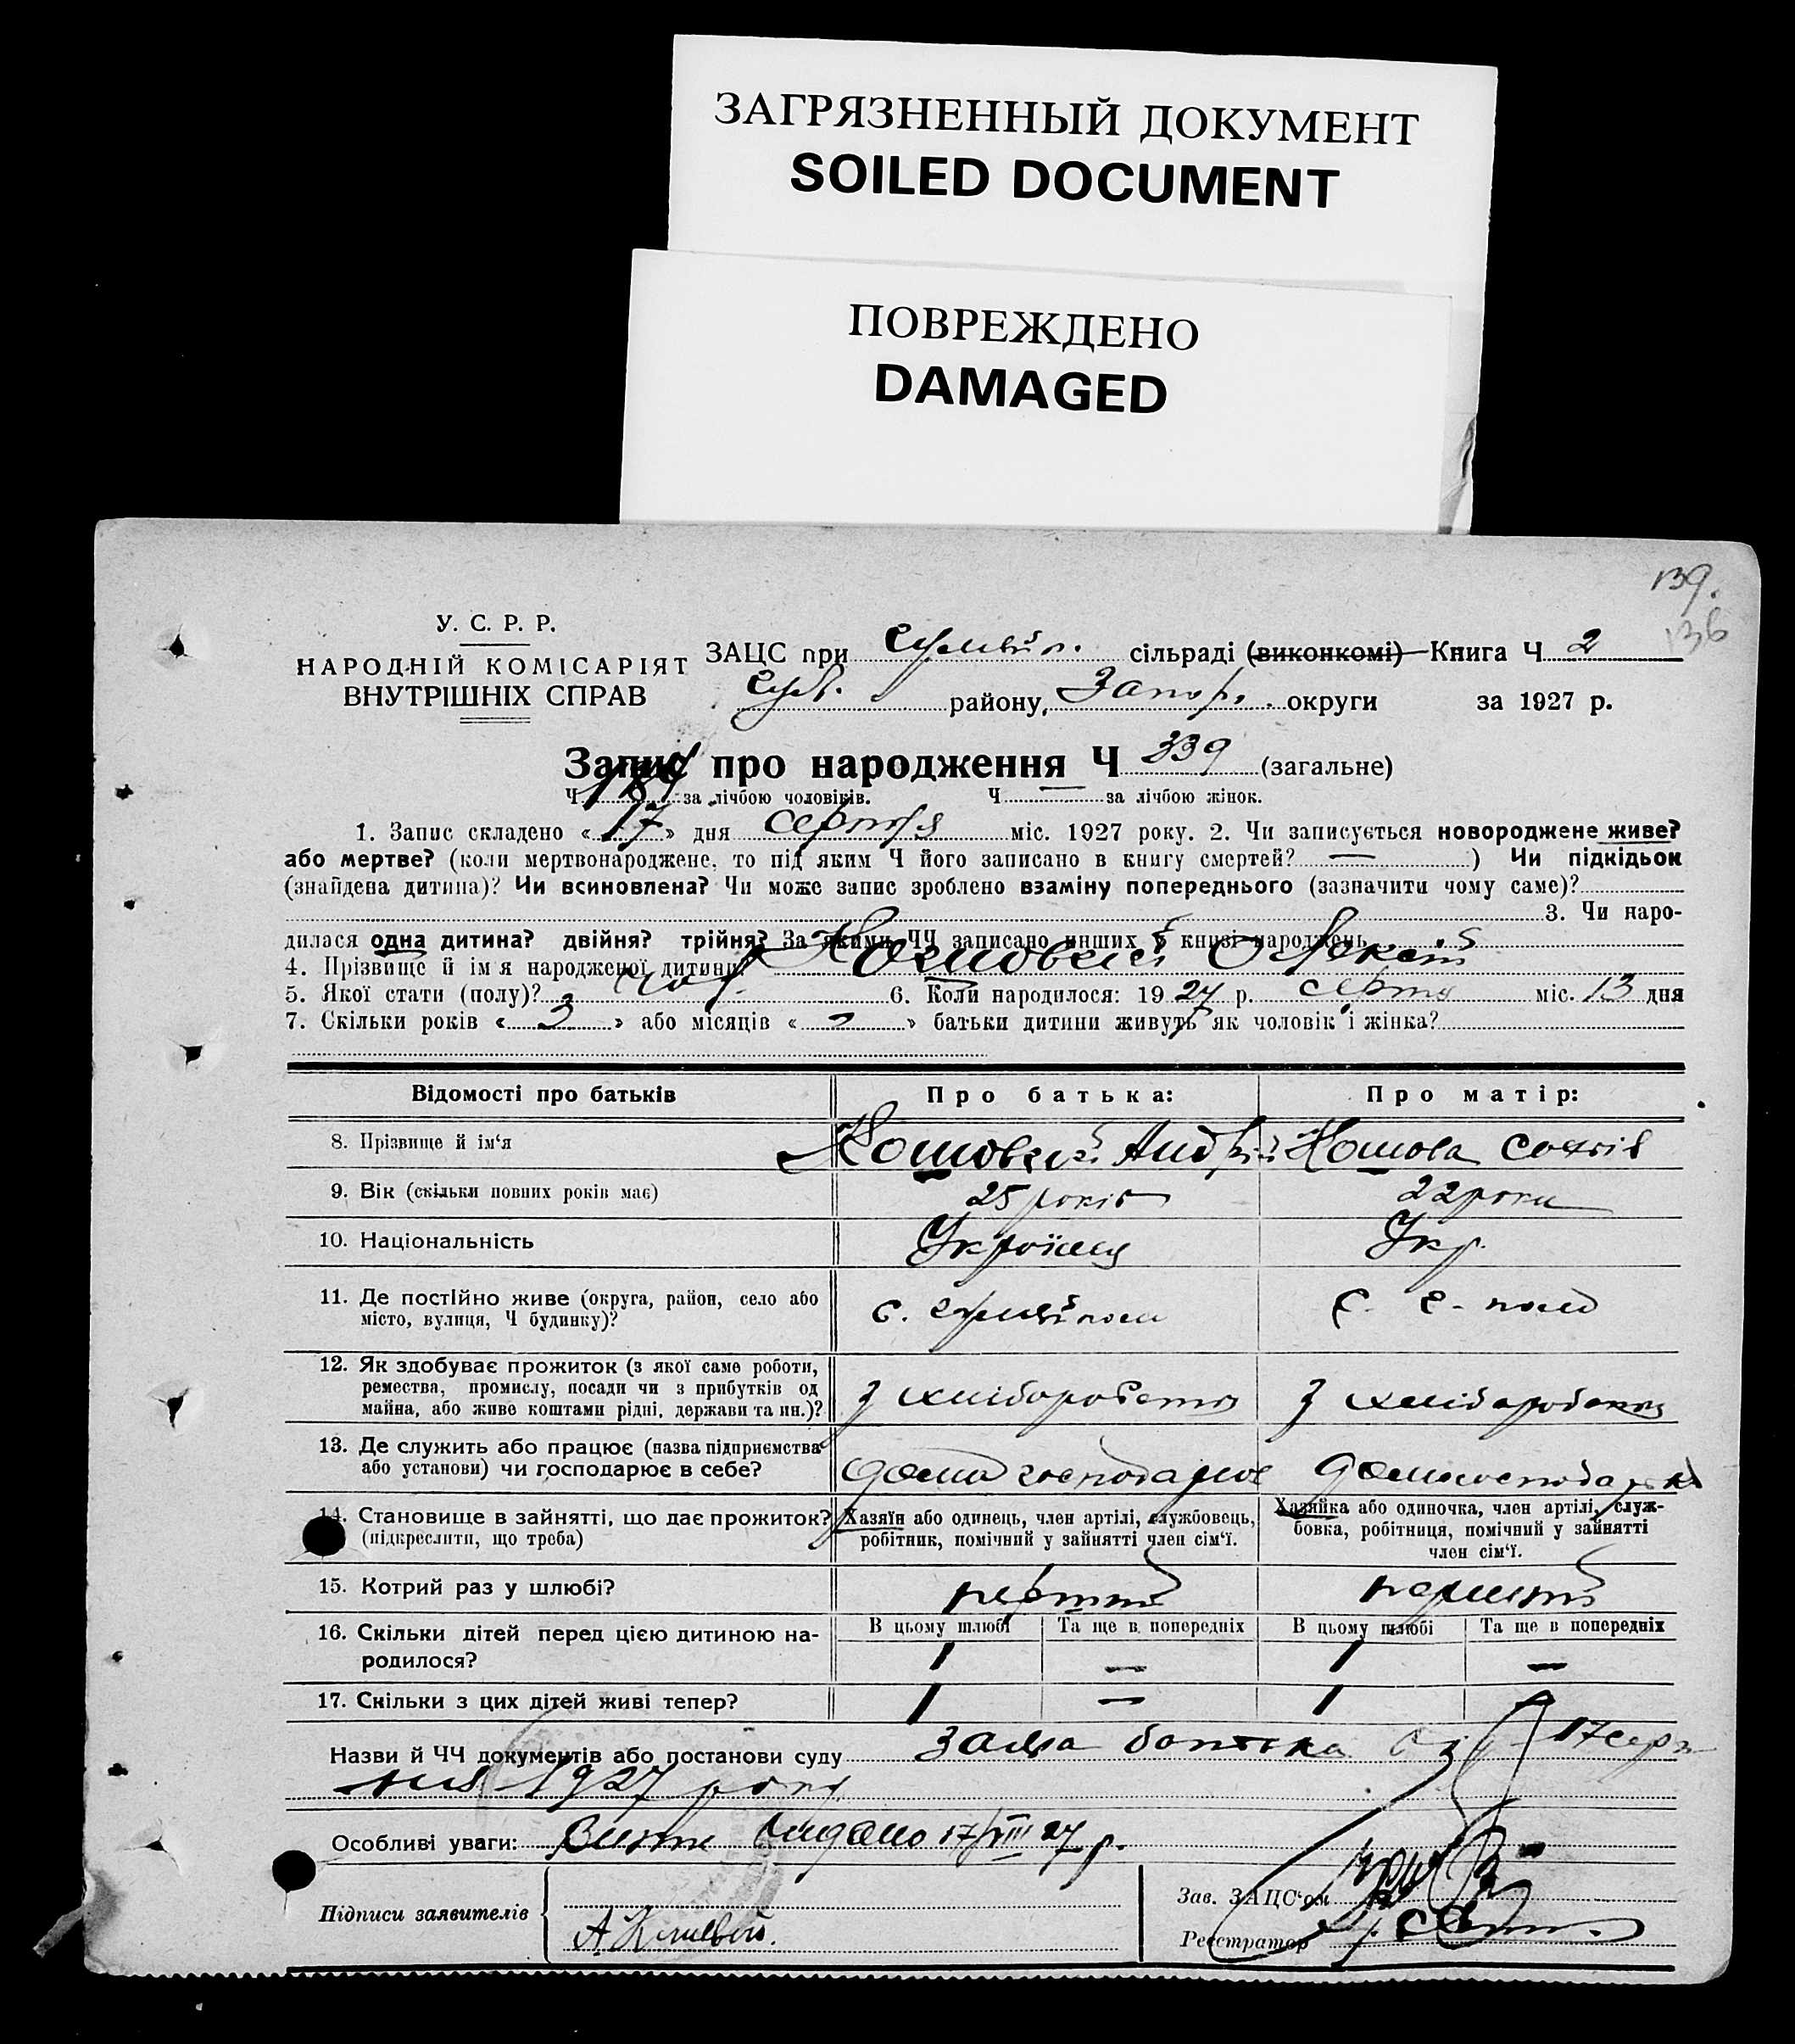 ЗАГРЯЗНЕННЫЙ ДОКУМЕНТ
SOILED DOCUMENT
ПОВРЕЖДЕНО
DAMAGED
139.
136
У. С. Р. Р.
НАРОДНІЙ КОМІСАРІЯТ
ВНУТРІШНІХ СПРАВ
ЗАЦС при сільраді (виконкомі) Книга Ч 2
району, Запор. округи за 1927 р.
Запис про народження Ч 339 (загальне)
Ч за лічбою чоловіків. Ч — за лічбою жінок.
1. Запис складено « 17 » дня серпня міс. 1927 року. 2. Чи записується новороджене живе?
або мертве? (коли мертвонароджене, то під яким Ч його записано в книгу смертей? — ) Чи підкідьок
(знайдена дитина)? Чи всиновлена? Чи може запис зроблено взаміну попереднього (зазначити чому саме)?
3. Чи наро-
дилася одна дитина? двійня? трійня? За якими ЧЧ записано инших в книзі народжень
4. Прізвище й ім'я народженої дитини? Кошовий Олексій
5. Якої стати (полу)? чол. 6. Коли народилося: 19 27 р. серпня міс. 13 дня
7. Скільки років « 3 » або місяців « » батьки дитини живуть як чоловік і жінка?
Відомості про батьків Про батька: Про матір:
8. Прізвище й ім'я Кошовий Андрій Кошова Софія
9. Вік (скільки повних років має) 25 років 22 роки
10. Національність Українец Укр.
11. Де постійно живе (округа, район, село або
місто, вулиця, Ч будинку)?
12. Як здобуває прожиток (з якої саме роботи,
ремества, промислу, посади чи з прибутків од
майна, або живе коштами рідні, держави та ин.)? з хліборобства з хліборобства
13. Де служить або працює (назва підприємства
або установи) чи господарює в себе? дома господарює
14. Становище в зайнятті, що дає прожиток?
(підкреслити, що треба)
Хазяїн або одинець, член артілі, службовець,
робітник, помічний у зайнятті член сім'ї.
Хазяйка або одиночка, член артілі, служ-
бовка, робітниця, помічний у зайнятті
член сім'ї.
15. Котрий раз у шлюбі? перший перший
16. Скільки дітей перед цією дитиною на-
родилося?
В цьому шлюбі Та ще в попередніх В цьому шлюбі Та ще в попередніх
1 — 1 —
17. Скільки з цих дітей живі тепер? 1 — 1
Назви й ЧЧ документів або постанови суду заява батька 17 серп
ня 1927 року
Особливі уваги: видано 17/VIII 27 р.
Підписи заявителів
А Кошевой.
Зав. ЗАЦС'ом
Реєстратор